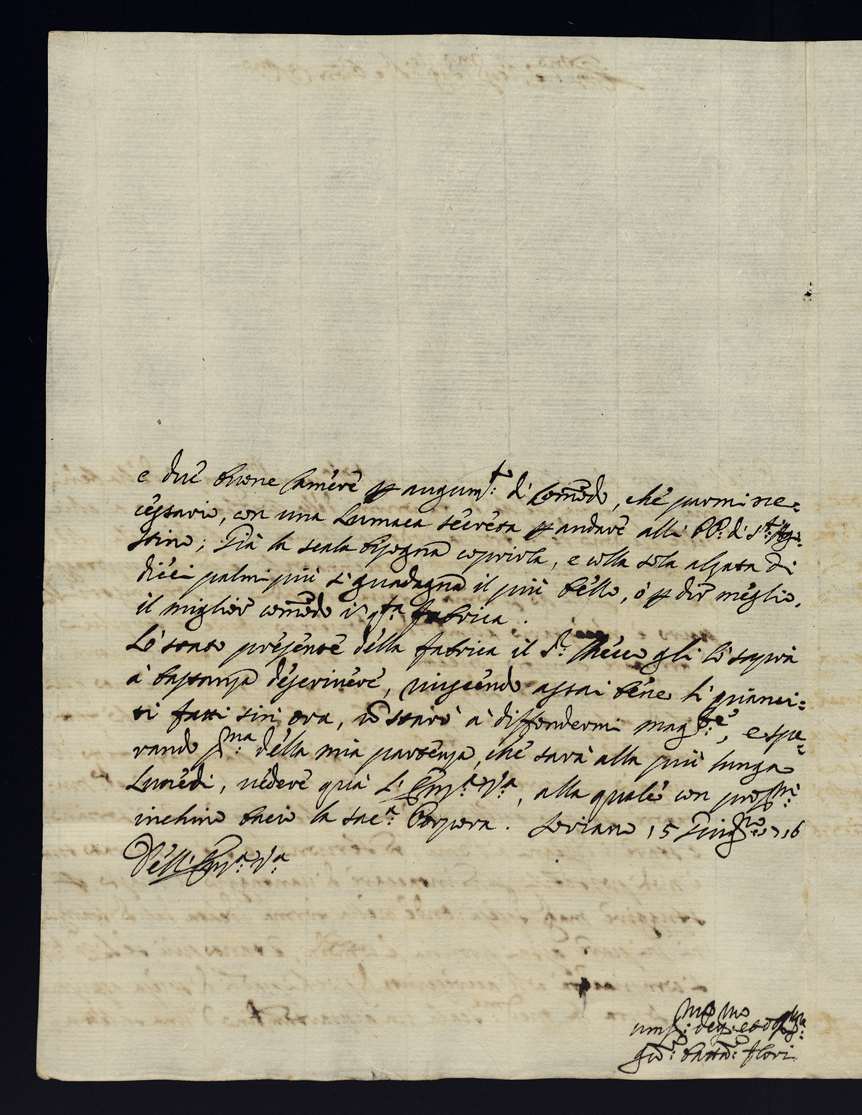 e due buone Camere p augum.to: di Comodo, che parmi ne=
cessario, con una Lumaca secreta p andare alli PP. di S.t Ago=
stino; Già la scala bisogna coprirla, e colla sola alzata di
dieci palmi più si guadagna il più bello, ò p dir meglio,
il miglior comodo di q.ta fabrica.
Lo stato presente della fabrica il S.r Checco gli lo saprà
à bastanza descrivere, riuscendo assai bene li
ti fatti sin ora, io starò à diffondermi mag.te, e spe=
rando p.ma della mia partenza, che sarà alla più lunga
Lunedi, vedere quà L'Em.a V.a, alla quale con prof.mo
inchino bacio la sac.a Porpora. Soriano 15 Giug.no 1716
Dell'Em.a V.a
Um.mo: Dev.mo: et
Gio: Batta: Flori